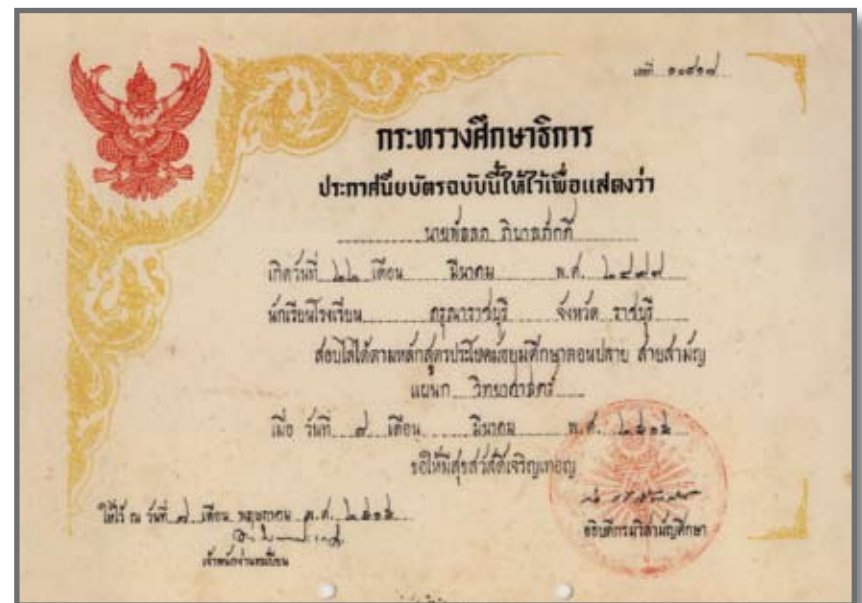 เลขที่
กระทรวงศึกษาธิการ
ประกาศนียบัตรฉบับนี้ให้ไว้เพื่อแสดงว่า
นาย
เกิดวันที่ ๒๒ เดือน มีนาคม พ.ศ. ๒๔๙๗
นักเรียนโรงเรียน ดรุณาราชบุรี จังหวัด ราชบุรี
สอบไล่ได้ตามหลักสูตรประโยคมัธยมศึกษาตอนปลาย สายสามัญ
แผนก วิทยาศาสตร์
เมื่อ วันที่ เดือน มีนาคม พ.ศ.
ขอให้มีสุขสวัสดิ์เจริญเทอญ
ให้ไว้ ณ วันที่ เดือน พฤษภาคม พ.ศ.
อธิบดีกรมวิสามัญศึกษา
เจ้าพนักงานทะเบียน